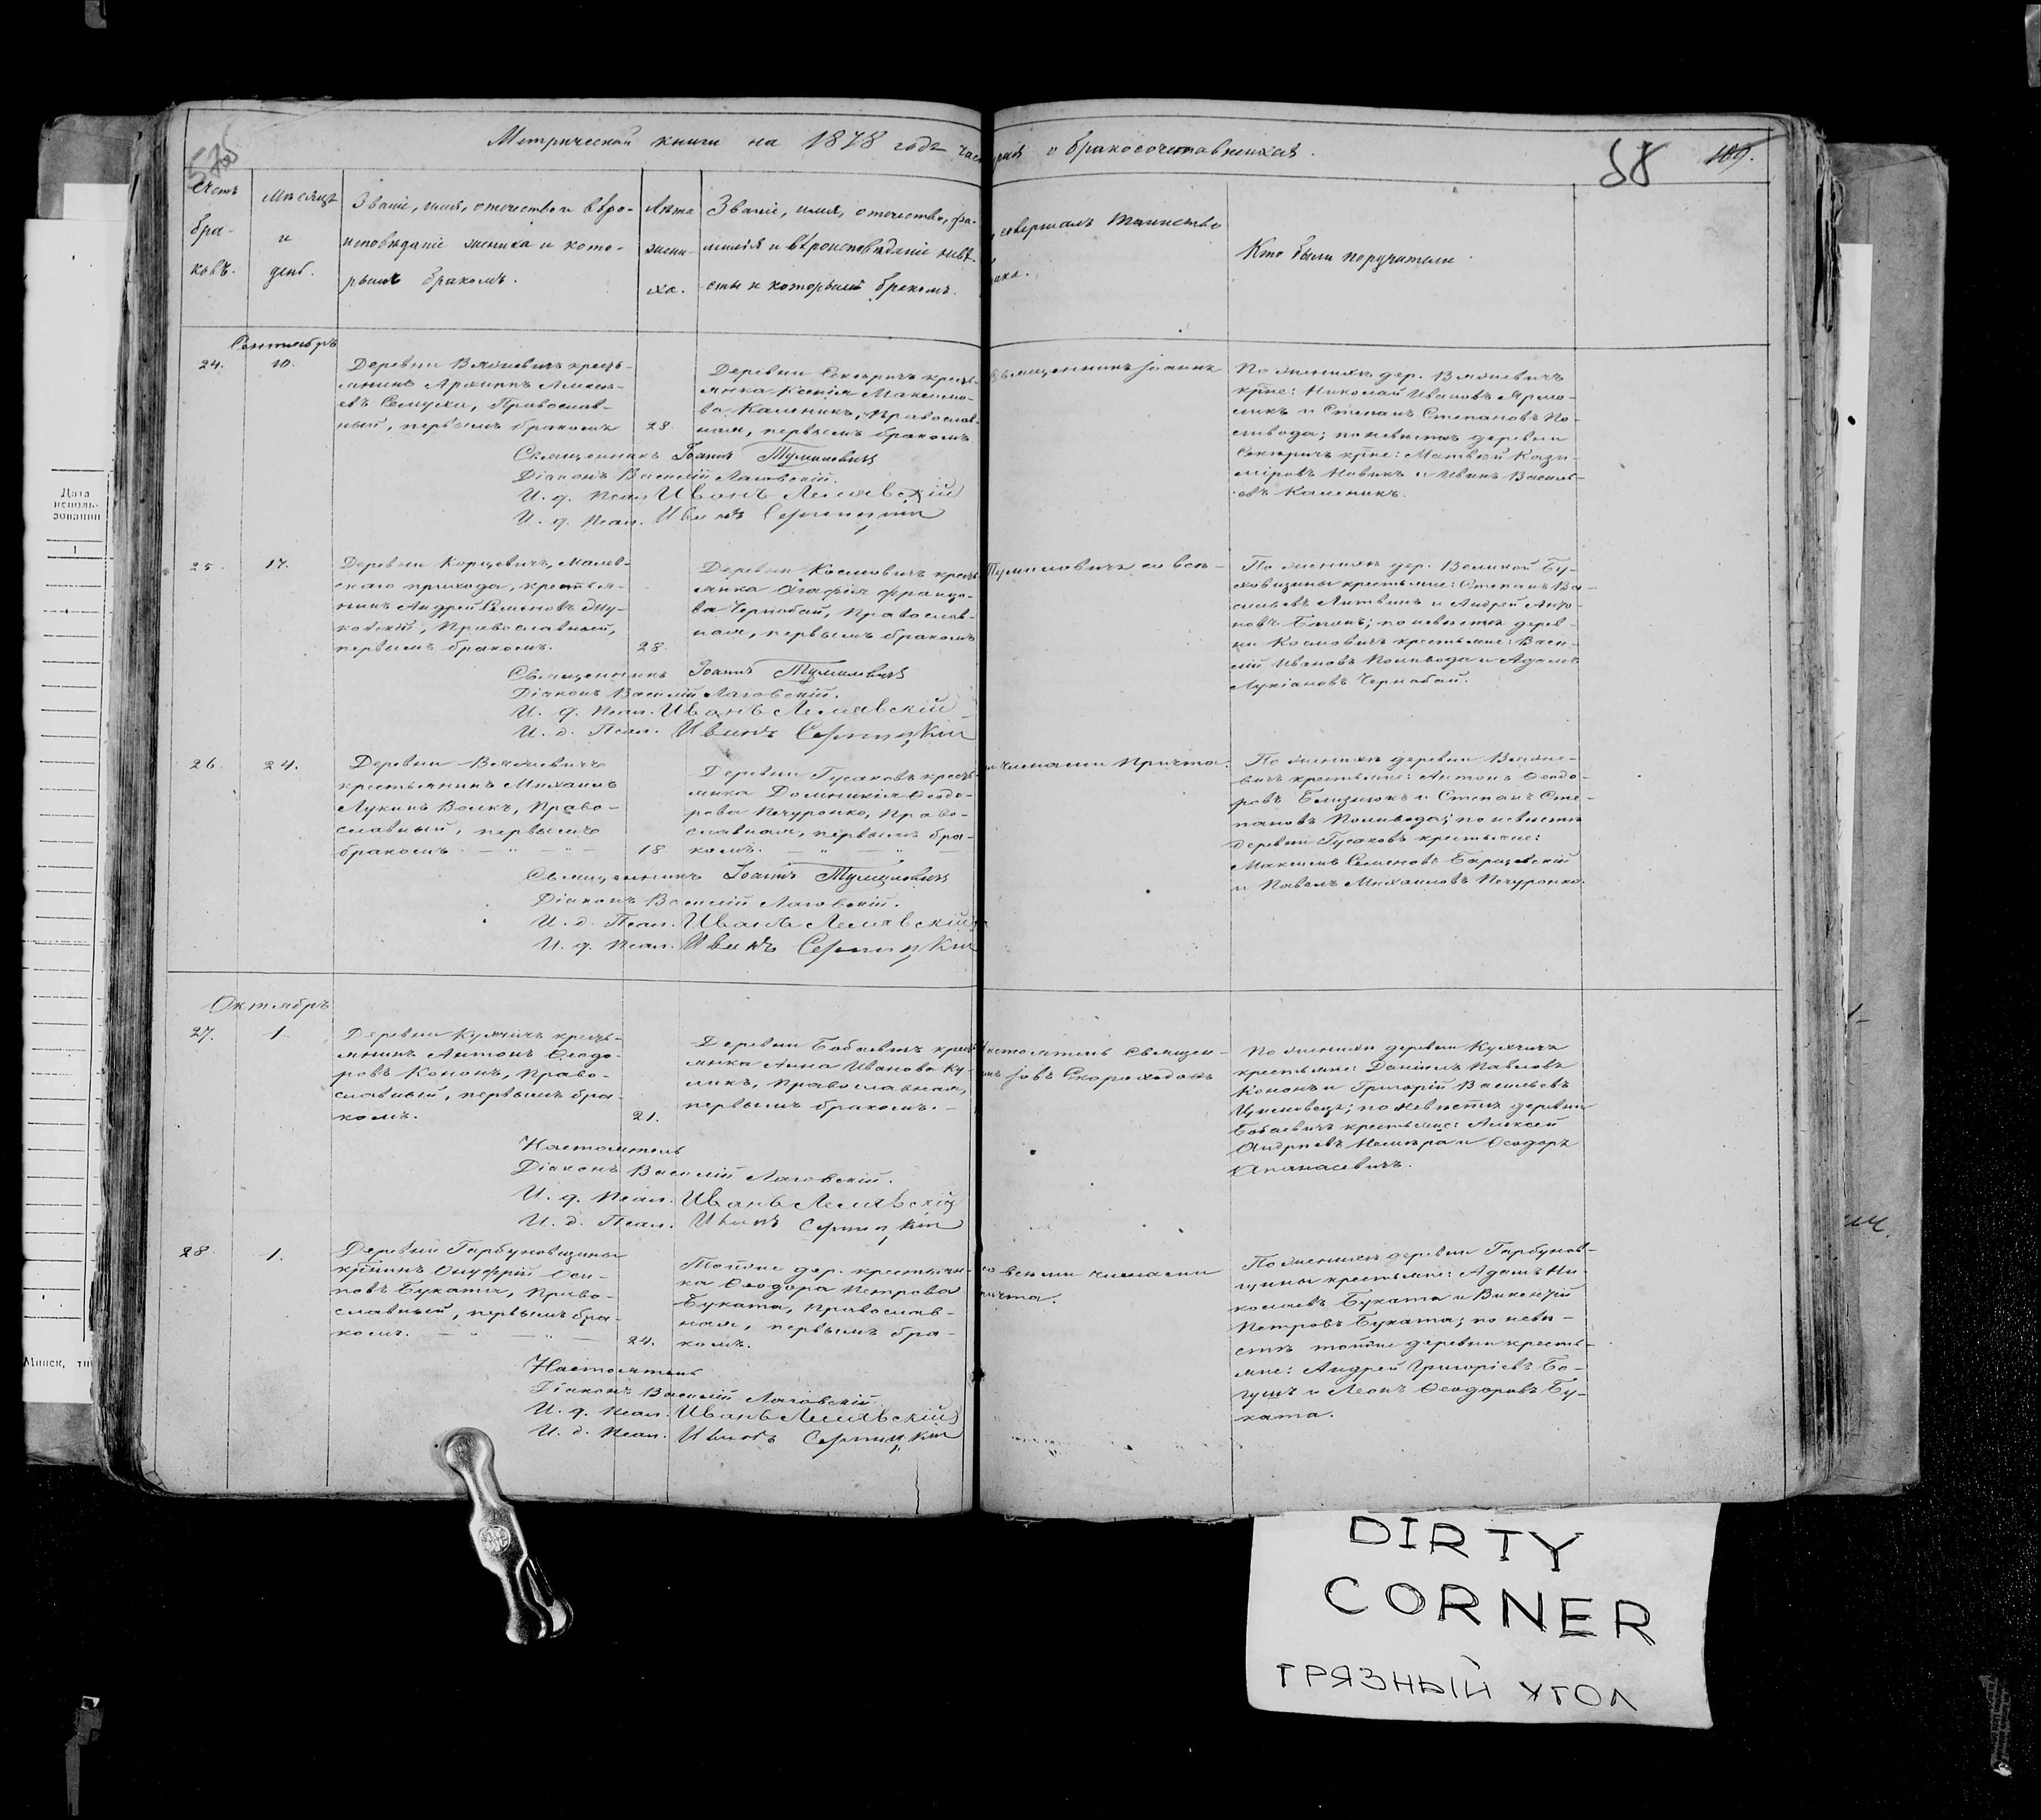 Метрической книги на 1878 годъ часть вторая о бракосочетавшихся.
58 109.
Счетъ бра-ковъ.
Мѣсяцъ и день.
Званіе, имя, отчество и вѣро-
исповѣданіе жениха и кото-
рымъ бракомъ.
Лѣта жени-ха.
Званіе, имя, отчество, фа-
милія и вѣроисповѣданіе невѣ-
сты и которымъ бракомъ.
совершалъ таинство
брака.
Кто были поручители.
Сентябрь
24. 10.
Деревни Вяжевичъ кресть-
янинъ Архипъ Алексѣ-
евъ Семуха, Православ-
ный, первымъ бракомъ
28.
Деревни Секѣричъ кресть-
янка Ксенія Максимо-
ва Каленикъ, Православ-
ная, первымъ бракомъ
Священникъ Іоаннъ
По женихѣ дер. Вяжевичъ
кр̃не: Николай Ивановъ Ярмо-
ликъ и Степанъ Степановъ По-
ливода; по невѣстѣ деревни
Секѣричъ кр̃не: Матвѣй Кази-
міровъ Новикъ и Иванъ Василь-
евъ Каленикъ.
Священникъ Іоаннъ Тумиловичъ
Діаконъ Василій Лаговскій.
И. д. Псал. Иванъ Лелявскій
И. д. Псал. Иванъ
25. 17.
Деревни Корцевичъ, Малев-
скаго прихода, крестья-
нинъ Андрей Семеновъ Жу-
ковскій, Православный,
первымъ бракомъ.
28.
Деревни Космовичъ кресть-
янка Агафія Францо-
ва Чернобай, Православ-
ная, первымъ бракомъ
Тумиловичъ со всѣ-
По женихѣ дер. Великой Бу-
ховщины крестьяне: Степанъ Ва-
сильевъ Литвинъ и Андрей Анто-
новъ; по невѣстѣ дерев-
ни Космовичъ крестьяне: Васи-
лій Ивановъ Поливода и Адамъ
Лукіановъ Чернобай.
Священникъ Іоаннъ Тумиловичъ
Діаконъ Василій Лаговскій.
И. д. Псал. Иванъ Лелявскій
И. д. Псал. Иванъ
26. 24.
Деревни Вяжевичъ
крестьянинъ Михаилъ
Лукинъ Волкъ, Право-
славный, первымъ
бракомъ
18
Деревни Гусаковъ кресть-
янка Домникія Ѳеодо-
рова Печуронко, Право-
славная, первымъ бра-
комъ.
членами причта.
По женихѣ деревни Вяже-
вичъ крестьяне: Антонъ Ѳеодо-
ровъ Близнюкъ и Степанъ Сте-
пановъ Поливода; по невѣстѣ
деревни Гусаковъ крестьяне:
Максимъ Семеновъ Барщевскій
и Павелъ Михаиловъ Печуронко.
Священникъ Іоаннъ Тумиловичъ
Діаконъ Василій Лаговскій.
И. д. Псал. Иванъ Лелявскій
И. д. Псал. Иванъ
Октябрь
27. 1.
Деревни Кухчичъ кресть-
янинъ Антонъ Ѳеодо-
ровъ Кононъ, Право-
славный, первымъ бра-
комъ.
21.
Деревни Бабаевичъ кресть-
янка Анна Иванова Ку-
ликъ, Православная,
первымъ бракомъ.
Настоятель Священ-
никъ Іовъ Скороходовъ
По женихѣ деревни Кухчичъ
крестьяне: Даніилъ Павловъ
Кононъ и Григорій Васильевъ
по невѣстѣ деревни
Бабаевичъ крестьяне: Алексѣй
Андреевъ Немѣра и Ѳеодоръ
Апанасевичъ.
Настоятель
Діаконъ Василій Лаговскій.
И. д. Псал. Иванъ Лелявскій
И. д. Псал. Иванъ
28 1.
Деревни Гарбуновщины
кр̃нинъ Онуфрій Оси-
повъ Буката, Право-
славный, первымъ бра-
комъ.
24.
Тойже дер. крестьян-
ка Ѳеодора Петрова
Буката, Православ-
ная, первымъ бра-
комъ.
со всѣми членами
причта.
По женихѣ деревни Гарбунов-
щины крестьяне: Адамъ Ни-
колаевъ Буката и Викентій
Петровъ Буката; по невѣ-
стѣ тойже деревни кресть-
яне: Андрей Григоріевъ Бо-
гушъ и Леонъ Ѳеодоровъ Бу-
ката.
Настоятель
Діаконъ Василій Лаговскій.
И. д. Псал. Иванъ Лелявскій
И. д. Псал. Иванъ
Дата
исполь-
зования
1
Минск, ти
DIRTY
CORNER
ГРЯЗНЫЙ УГОЛ